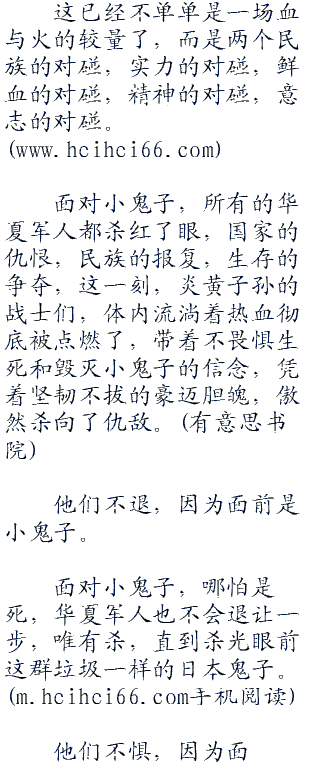 这已经不单单是一场血
与火的较量了，而是两个民
族的对碰，实力的对碰，鲜
血的对碰，精神的对碰，意
志的对碰。
(www.hcihci66.com)
面对小鬼子，所有的华
夏军人都杀红了眼，国家的
仇恨，民族的报复，生存的
争夺，这一刻，炎黄子孙的
战士们，体内流淌着热血彻
底被点燃了，带着不畏惧生
死和毁灭小鬼子的信念，凭
着坚韧不拔的豪迈胆魄，傲
然杀向了仇敌。(有意思书
院)
他们不退，因为面前是
小鬼子。
面对小鬼子，哪怕是
死，华夏军人也不会退让一
步，唯有杀，直到杀光眼前
这群垃圾一样的日本鬼子。
(m.hcihci66.com手机阅读)
他们不惧，因为面